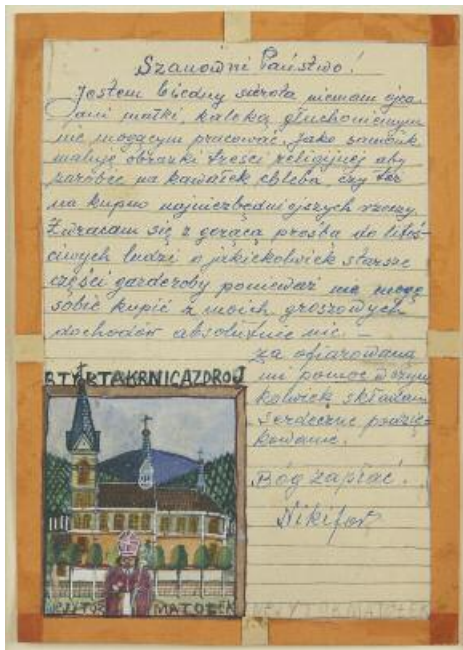 Szanowni Państwo!
Jestem biedny sierota niemam ojca
ani matki, kaleką głuchoniemym
nie mogącym pracować. Jako samouk
maluję obrazki treści religijnej aby
zarobić na kawałek chleba, czy też
na kupno najniezbędniejszych rzeczy.
Zwracam się z gorącą prośbą do litoś-
ciwych ludzi o jakiekolwiek starsze
części garderoby ponieważ nie mogę
sobie kupić z moich groszowych
dochodów absolutnie nic. —
za ofiarowaną
mi pomoc w czym
kolwiek składam
serdeczne podzię-
kowanie.
Bóg zapłać!
Nikifor
KRNICAZDROJ
MATOŁEK